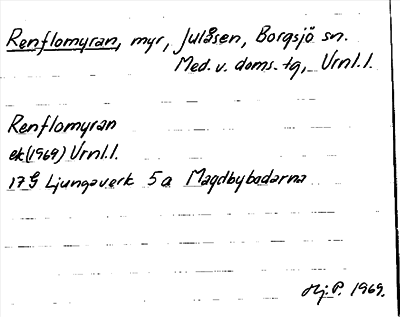 Renflomyran, myr, Julåsen, Borgsjö sn.
Med. v. doms. tg, Vrnl. l.
Renflomyran
ek (1969) Vrnl. l.
17 G Ljungaverk 5a Magdbybodarna
Hj. P. 1969.